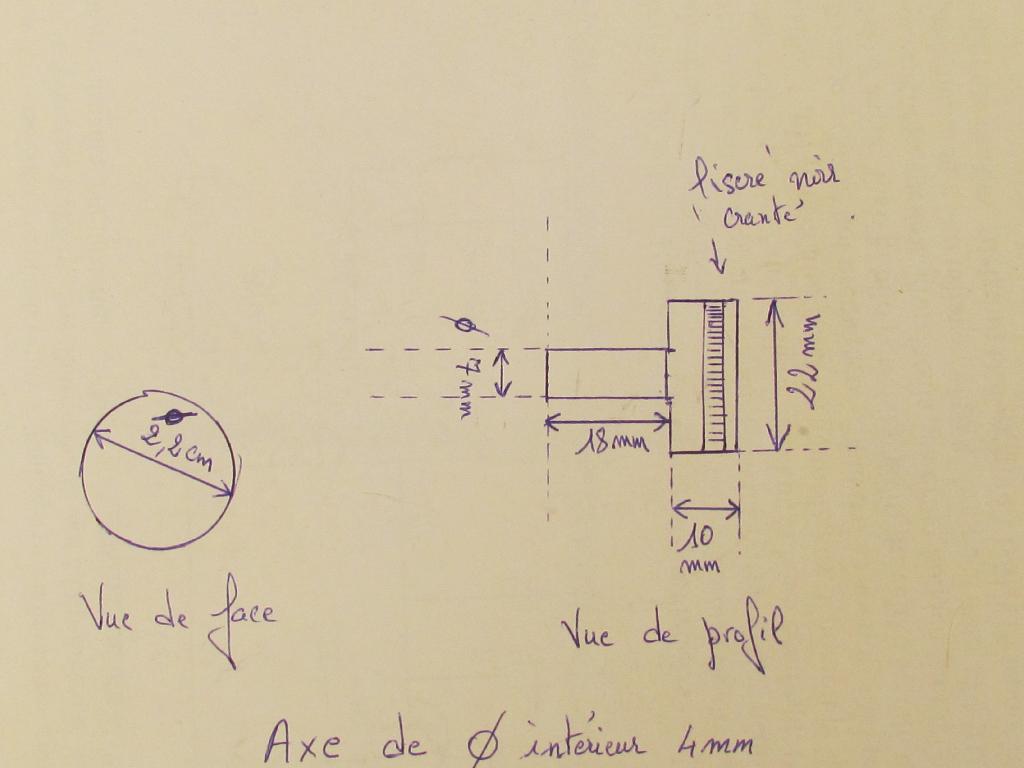 liseré noir
cranté
Ø
7 mm
22 mm
18 mm
Ø
2,2 cm
10
mm
Vue de face
Vue de profil
Axe de Ø intérieur 4 mm